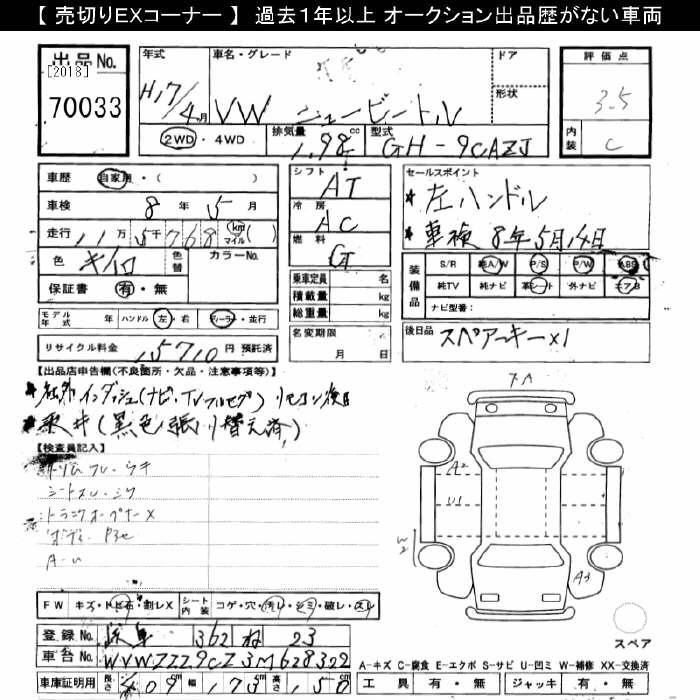 【 売切りEXコーナー 】 過去1年以上 オークション出品歴がない車両
出品No.
[2018]
70033
年式
H17/4月
車名・グレード
VW ニュービートル
ドア
形状
評価点
3.5
内装
C
2WD・4WD
排気量
1.98 cc
型式
GH-9CAZJ
車歴 自家用・( )
車検 8年 5月
走行 11万 5千 768 km マイル ( )
色 キイロ 色替 カラーNo.
保証書 有・無
モデル年式 年 ハンドル 左・右 ディーラー・並行
リサイクル料金 15710 円 預託済
シフト
AT
冷房
AC
燃料
G
乗車定員 名
積載量 kg
総重量 kg
名変期限
月 日
セールスポイント
*左ハンドル
*車検 8年5月14日
装備品
S/R 純A/W P/S P/W ABS
純TV 純ナビ 革シート 外ナビ エアB
ナビ型番:
後日品
スペアーキー×1
【出品店申告欄(不良箇所・欠品・注意事項等)】
*社外インダッシュ(ナビ・TVフルセグ) リモコン後日
*天井(黒色張り替え済)
【検査員記入】
シートスレ・シワ
トランクオープナー×
A-U
スペア
A2
U1
W2
A3
FW キズ・トビ石・割レX シート内装 コゲ・穴・汚レ・シミ・破レ・スレ
登録No. 362 ね 23
車台No. WVWZZZ9CZ3M628322
車庫証明用 長さ 409 cm 幅 173 cm 高さ 150 cm
A-キズ C-腐食 E-エクボ S-サビ U-凹ミ W-補修 XX-交換済
工具 有・無 ジャッキ 有・無